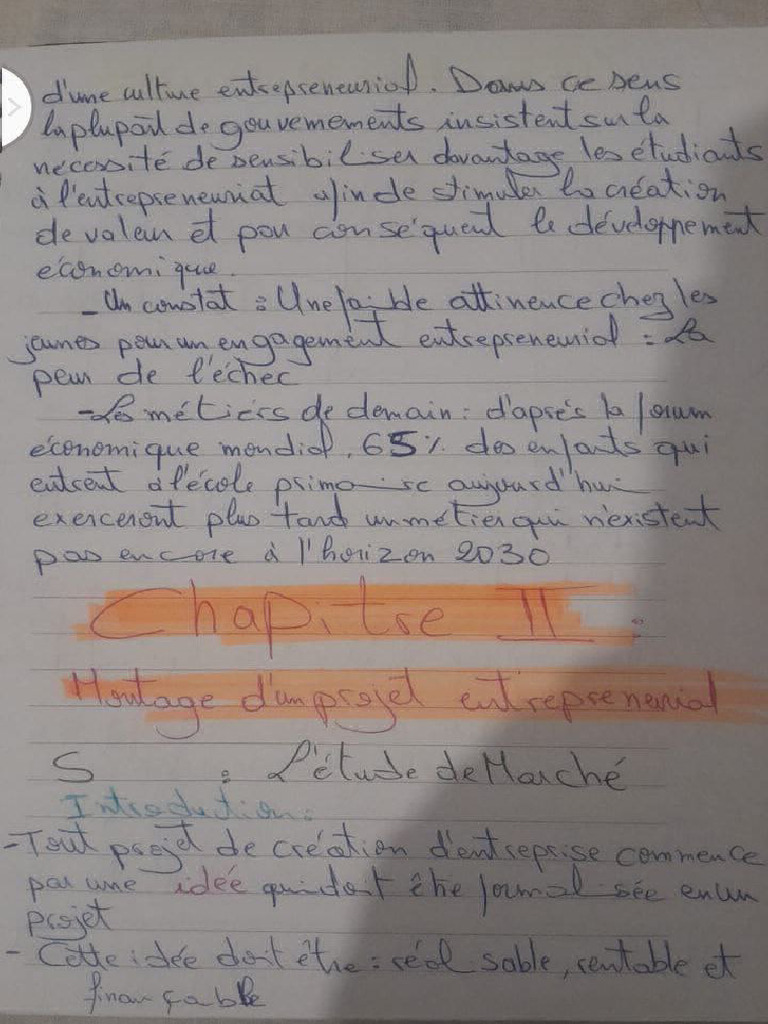 d'une culture entrepreneurial. Dans ce sens
la plupart de gouvernements insistent sur la
nécessité de sensibiliser davantage les étudiants
à l'entrepreneuriat afin de stimuler la création
de valeur et par conséquent le développement
économique.
- Un constat : Une faible attinence chez les
jeunes pour un engagement entrepreneurial : La
peur de l'échec
- Les métiers de demain : d'après la forum
économique mondial, 65% des enfants qui
entrent à l'école primaire aujourd'hui
exerceront plus tard un métier qui n'existent
pas encore à l'horizon 2030
Chapitre II :
Montage d'un projet entreprenerial
S : L'étude de Marché
Introduction :
- Tout projet de création d'entreprise commence
par une idée qui doit être formalisée en un
projet
- Cette idée doit être : réalisable, rentable et
finançable